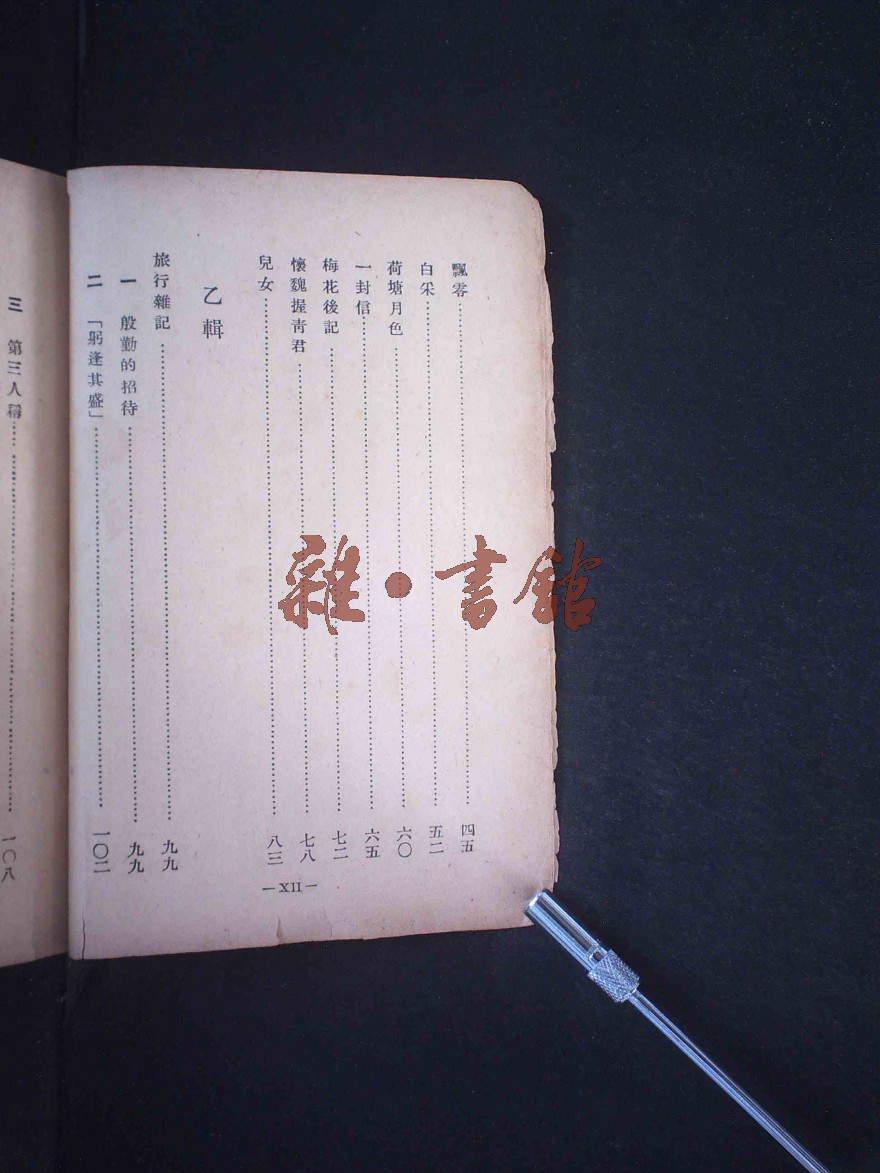 飄零……四五
白采……五二
荷塘月色……六〇
一封信……六五
梅花後記……七二
懷魏握青君……七八
兒女……八三
乙輯
旅行雜記……九九
一 殷勤的招待……九九
二 「躬逢其盛」……一〇二
—XII—
三 第三人稱……一〇八
雜·書館